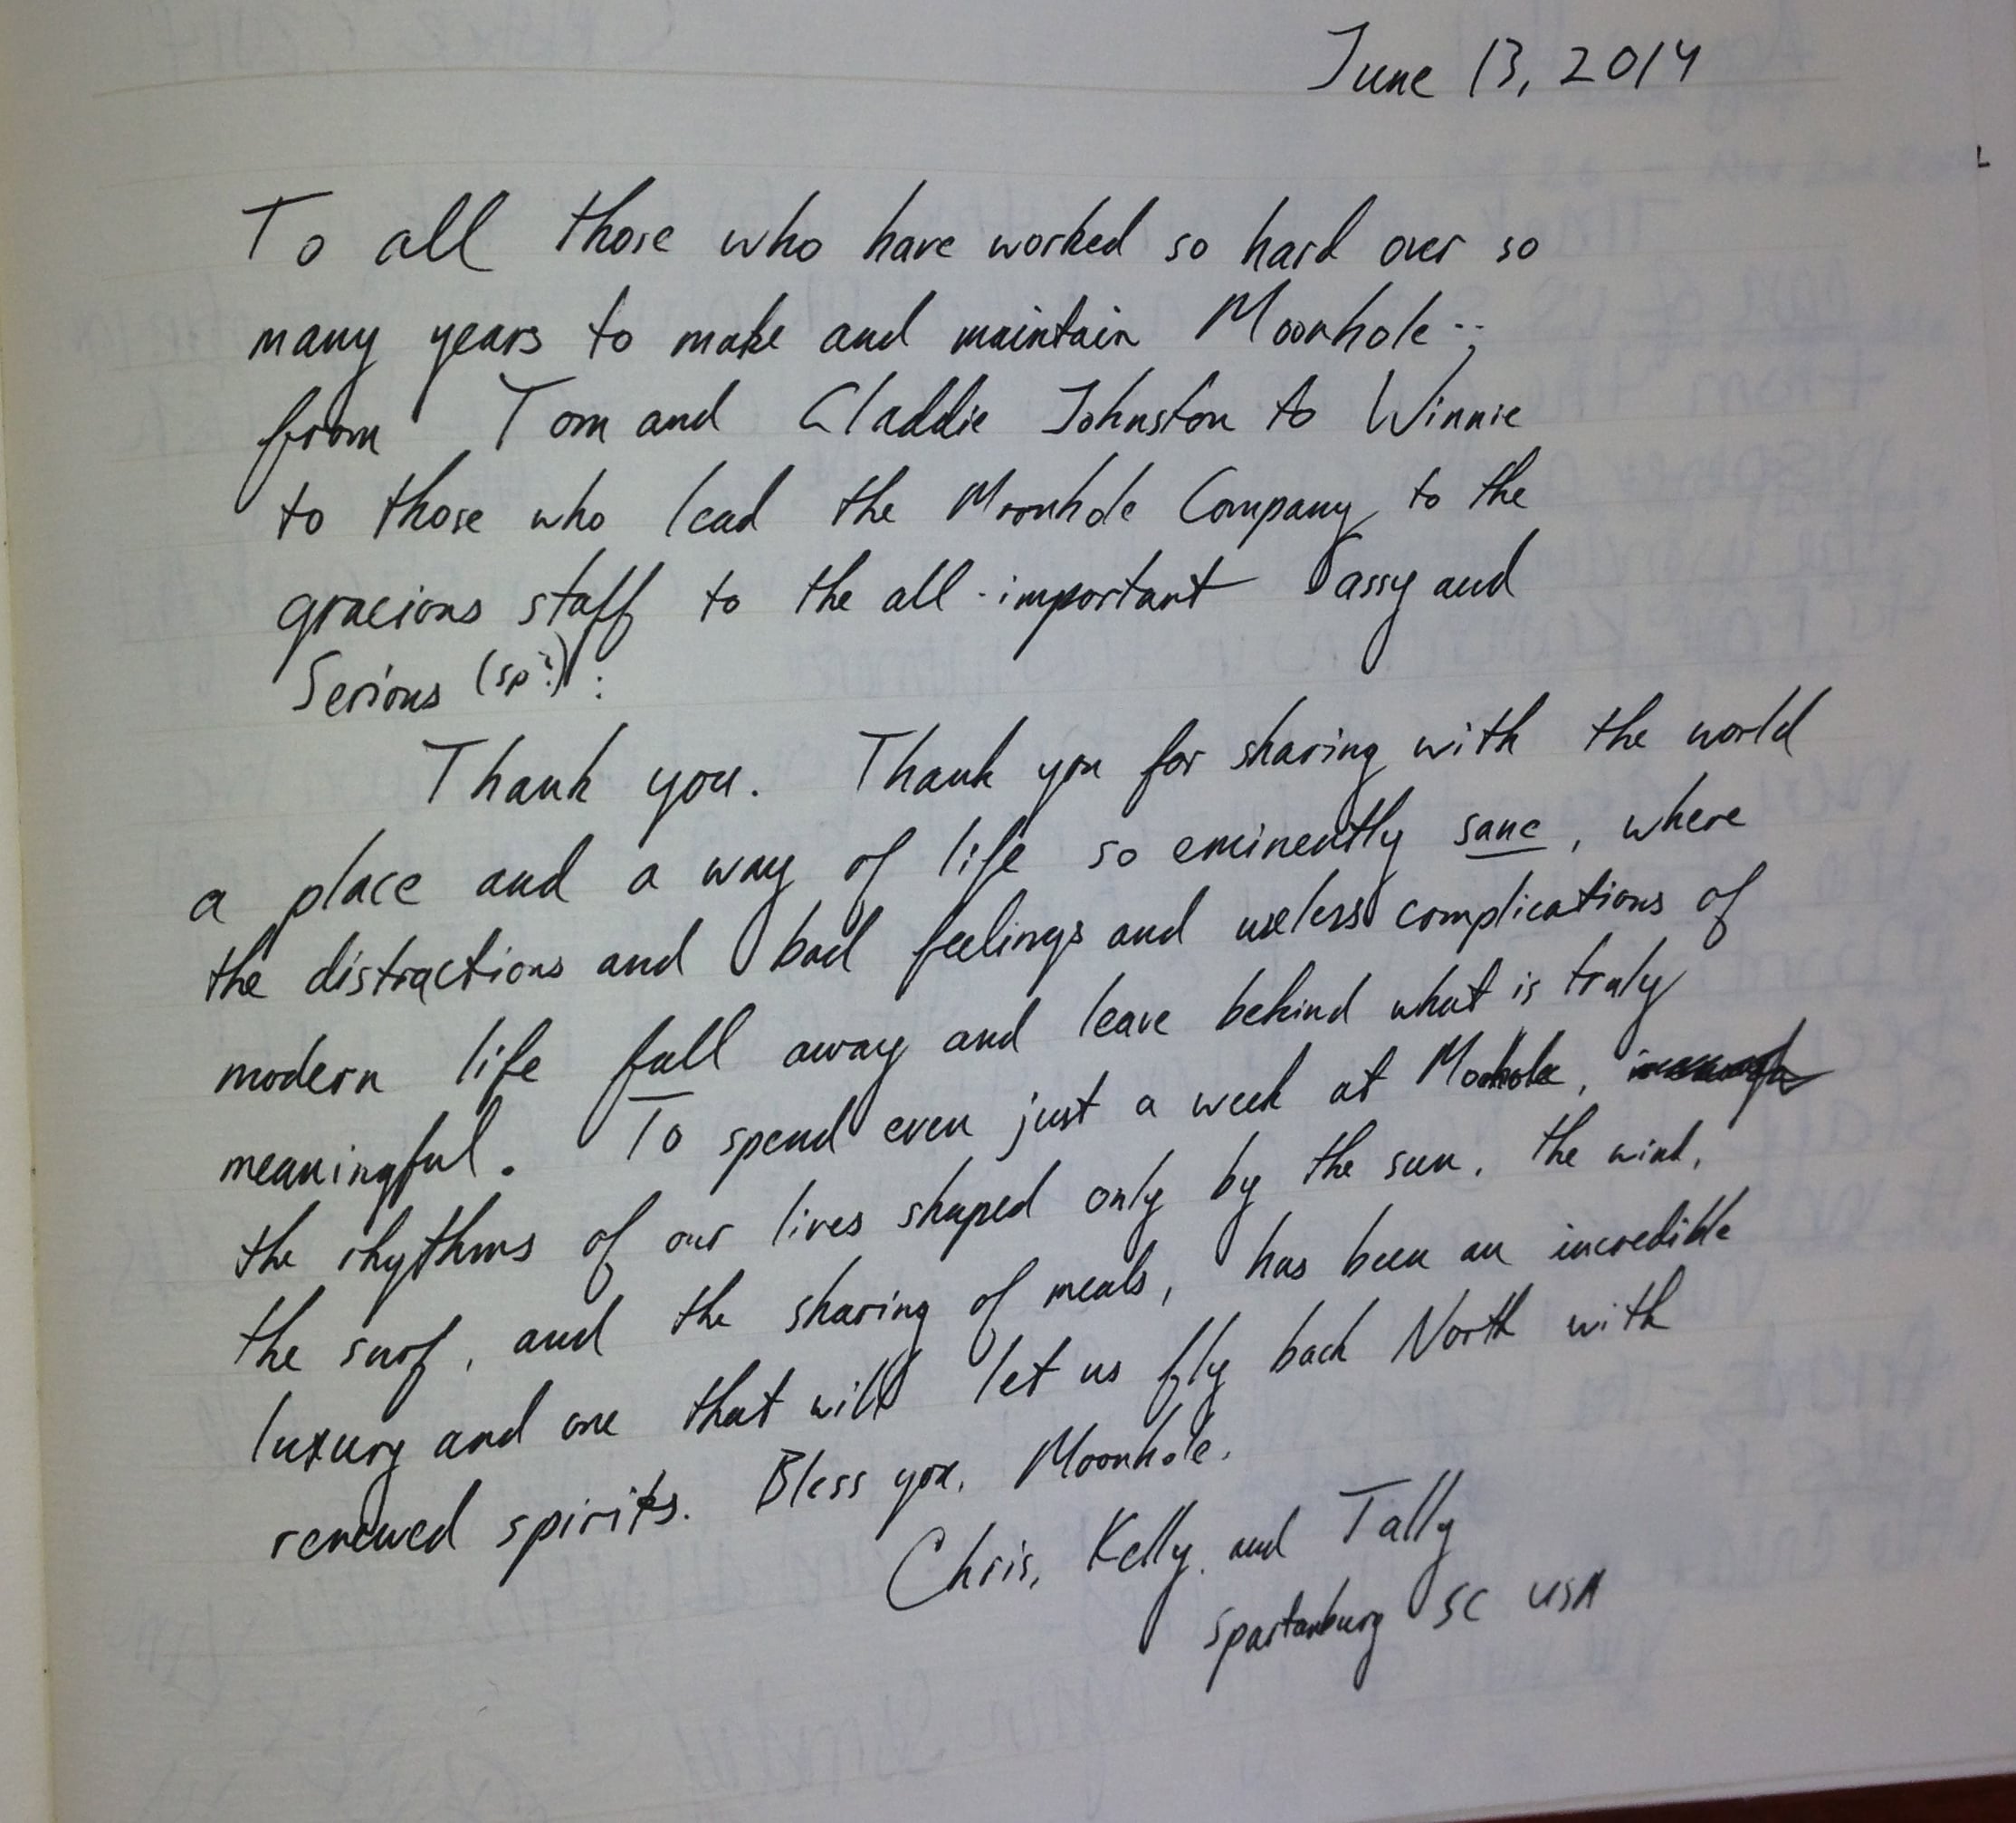 June 13, 2014
To all those who have worked so hard over so
many years to make and maintain Moonhole--;
from Tom and Gladdie Johnston to Winnie
to those who lead the Moonhole Company to the
gracious staff to the all-important Sassy and
Serious (sp?):
Thank you. Thank you for sharing with the world
a place and a way of life so eminently sane, where
the distractions and bad feelings and useless complications of
modern life fall away and leave behind what is truly
meaningful. To spend even just a week at Moonhole,
the rhythms of our lives shaped only by the sun, the wind,
the surf, and the sharing of meals, has been an incredible
luxury and one that will let us fly back North with
renewed spirits. Bless you, Moonhole.
Chris, Kelly, and Tally
Spartanburg SC USA